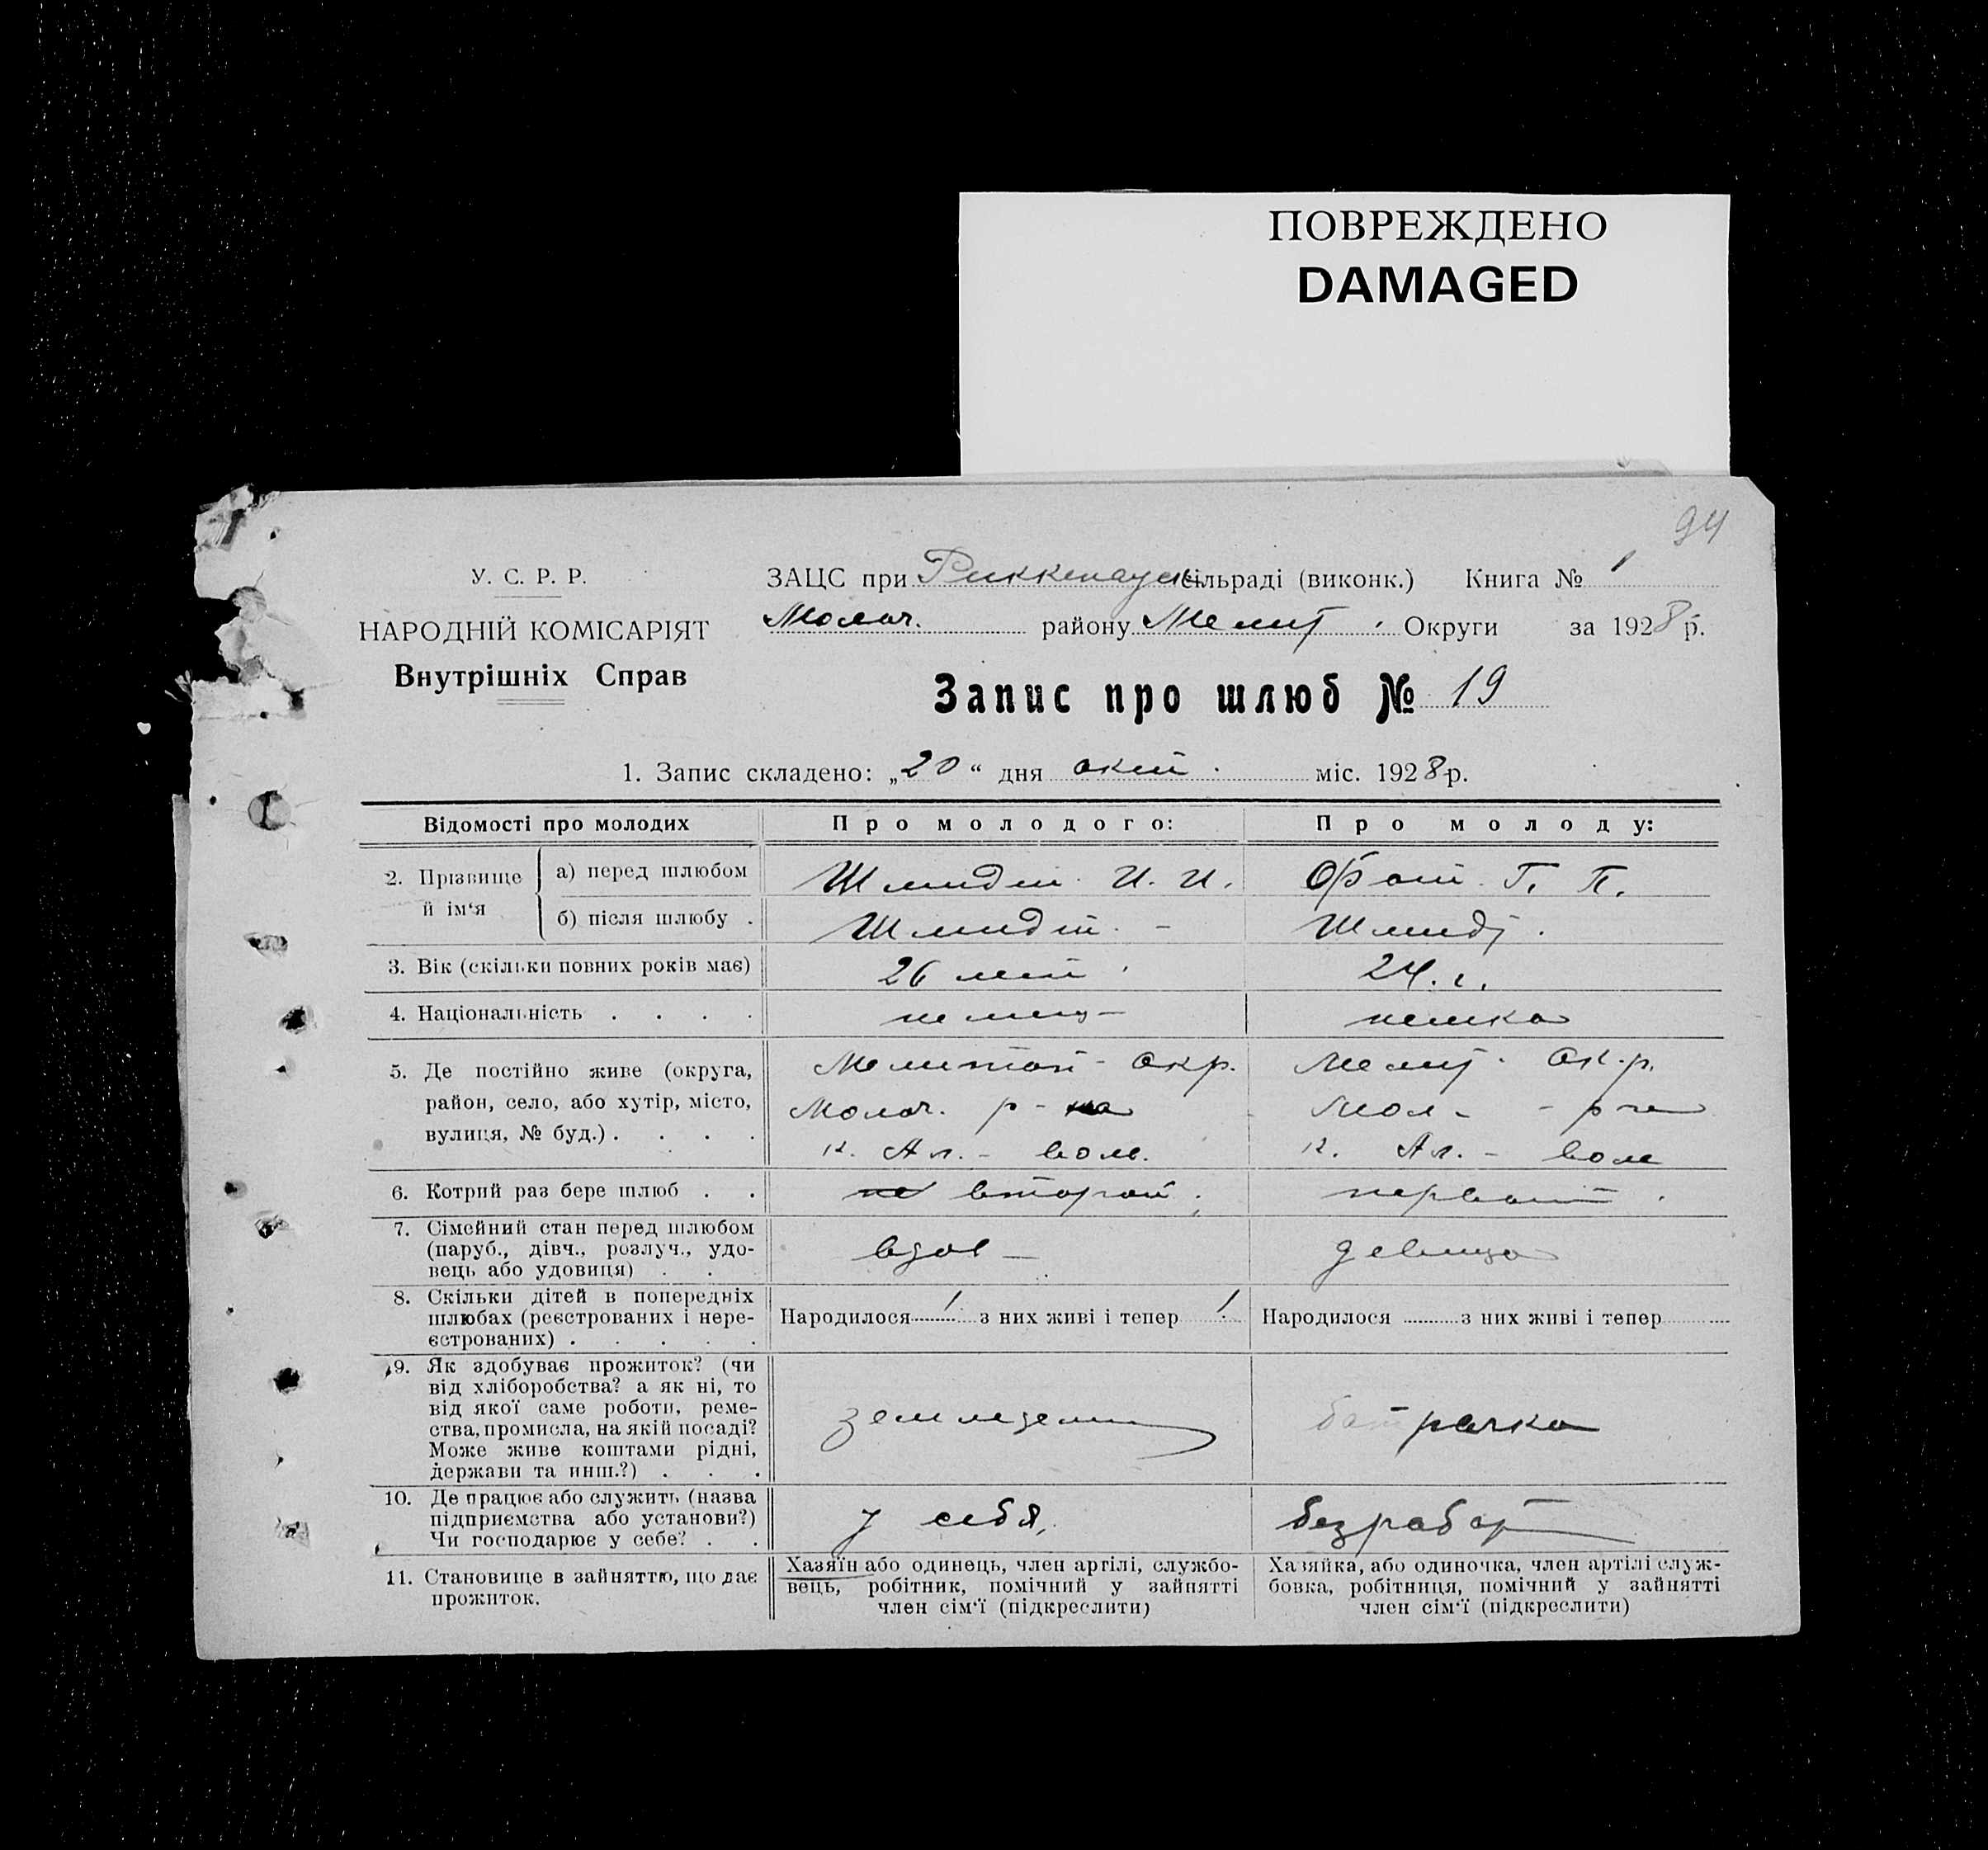 ПОВРЕЖДЕНО
DAMAGED
94
У. С. Р. Р.
НАРОДНІЙ КОМІСАРІЯТ
Внутрішніх Справ
ЗАЦС при Риккенауск сільраді (виконк.) Книга № 1
Молоч. району Мелит. Округи за 1928 р.
Запис про шлюб № 19
1. Запис складено: „20“ дня окт. міс. 1928 р.
Відомості про молодих
Про молодого:
Про молоду:
2. Прізвище й ім‘я
а) перед шлюбом
Шмидт И. И.
Г. П.
б) після шлюбу .
Шмидт. -
Шмидт.
3. Вік (скільки повних років має)
26 лет
24. г.
4. Національність . . . .
немец
немка
5. Де постійно живе (округа,
район, село, або хутір, місто,
вулиця, № буд.) . . . .
Мелитоп - окр.
Молоч. р-на
к. Ал. - воль.
Мелит. Ок-р.
Мол - - р-на
к. Ал. - воль
6. Котрий раз бере шлюб . .
не второй.
первый.
7. Сімейний стан перед шлюбом
(паруб., дівч., розлуч., удо-
вець або удовиця) . .
вдов -
девица
8. Скільки дітей в попередніх
шлюбах (реєстрованих і нере-
єстрованих) . . . . .
Народилося 1 з них живі і тепер 1
Народилося з них живі і тепер
9. Як здобуває прожиток? (чи
від хліборобства? а як ні, то
від якої саме роботи, реме-
ства, промисла, на якій посаді?
Може живе коштами рідні,
держави та инш.?) . . .
земледелие
батрачка
10. Де працює або служить (назва
підприємства або установи?)
Чи господарює у себе? . .
у себя,
безработ
11. Становище в зайняттю, що дає
прожиток.
Хазяїн або одинець, член артілі, службо-
вець, робітник, помічний у зайнятті
член сім‘ї (підкреслити)
Хазяйка, або одиночка, член артілі служ-
бовка, робітниця, помічний у зайнятті
член сім‘ї (підкреслити)